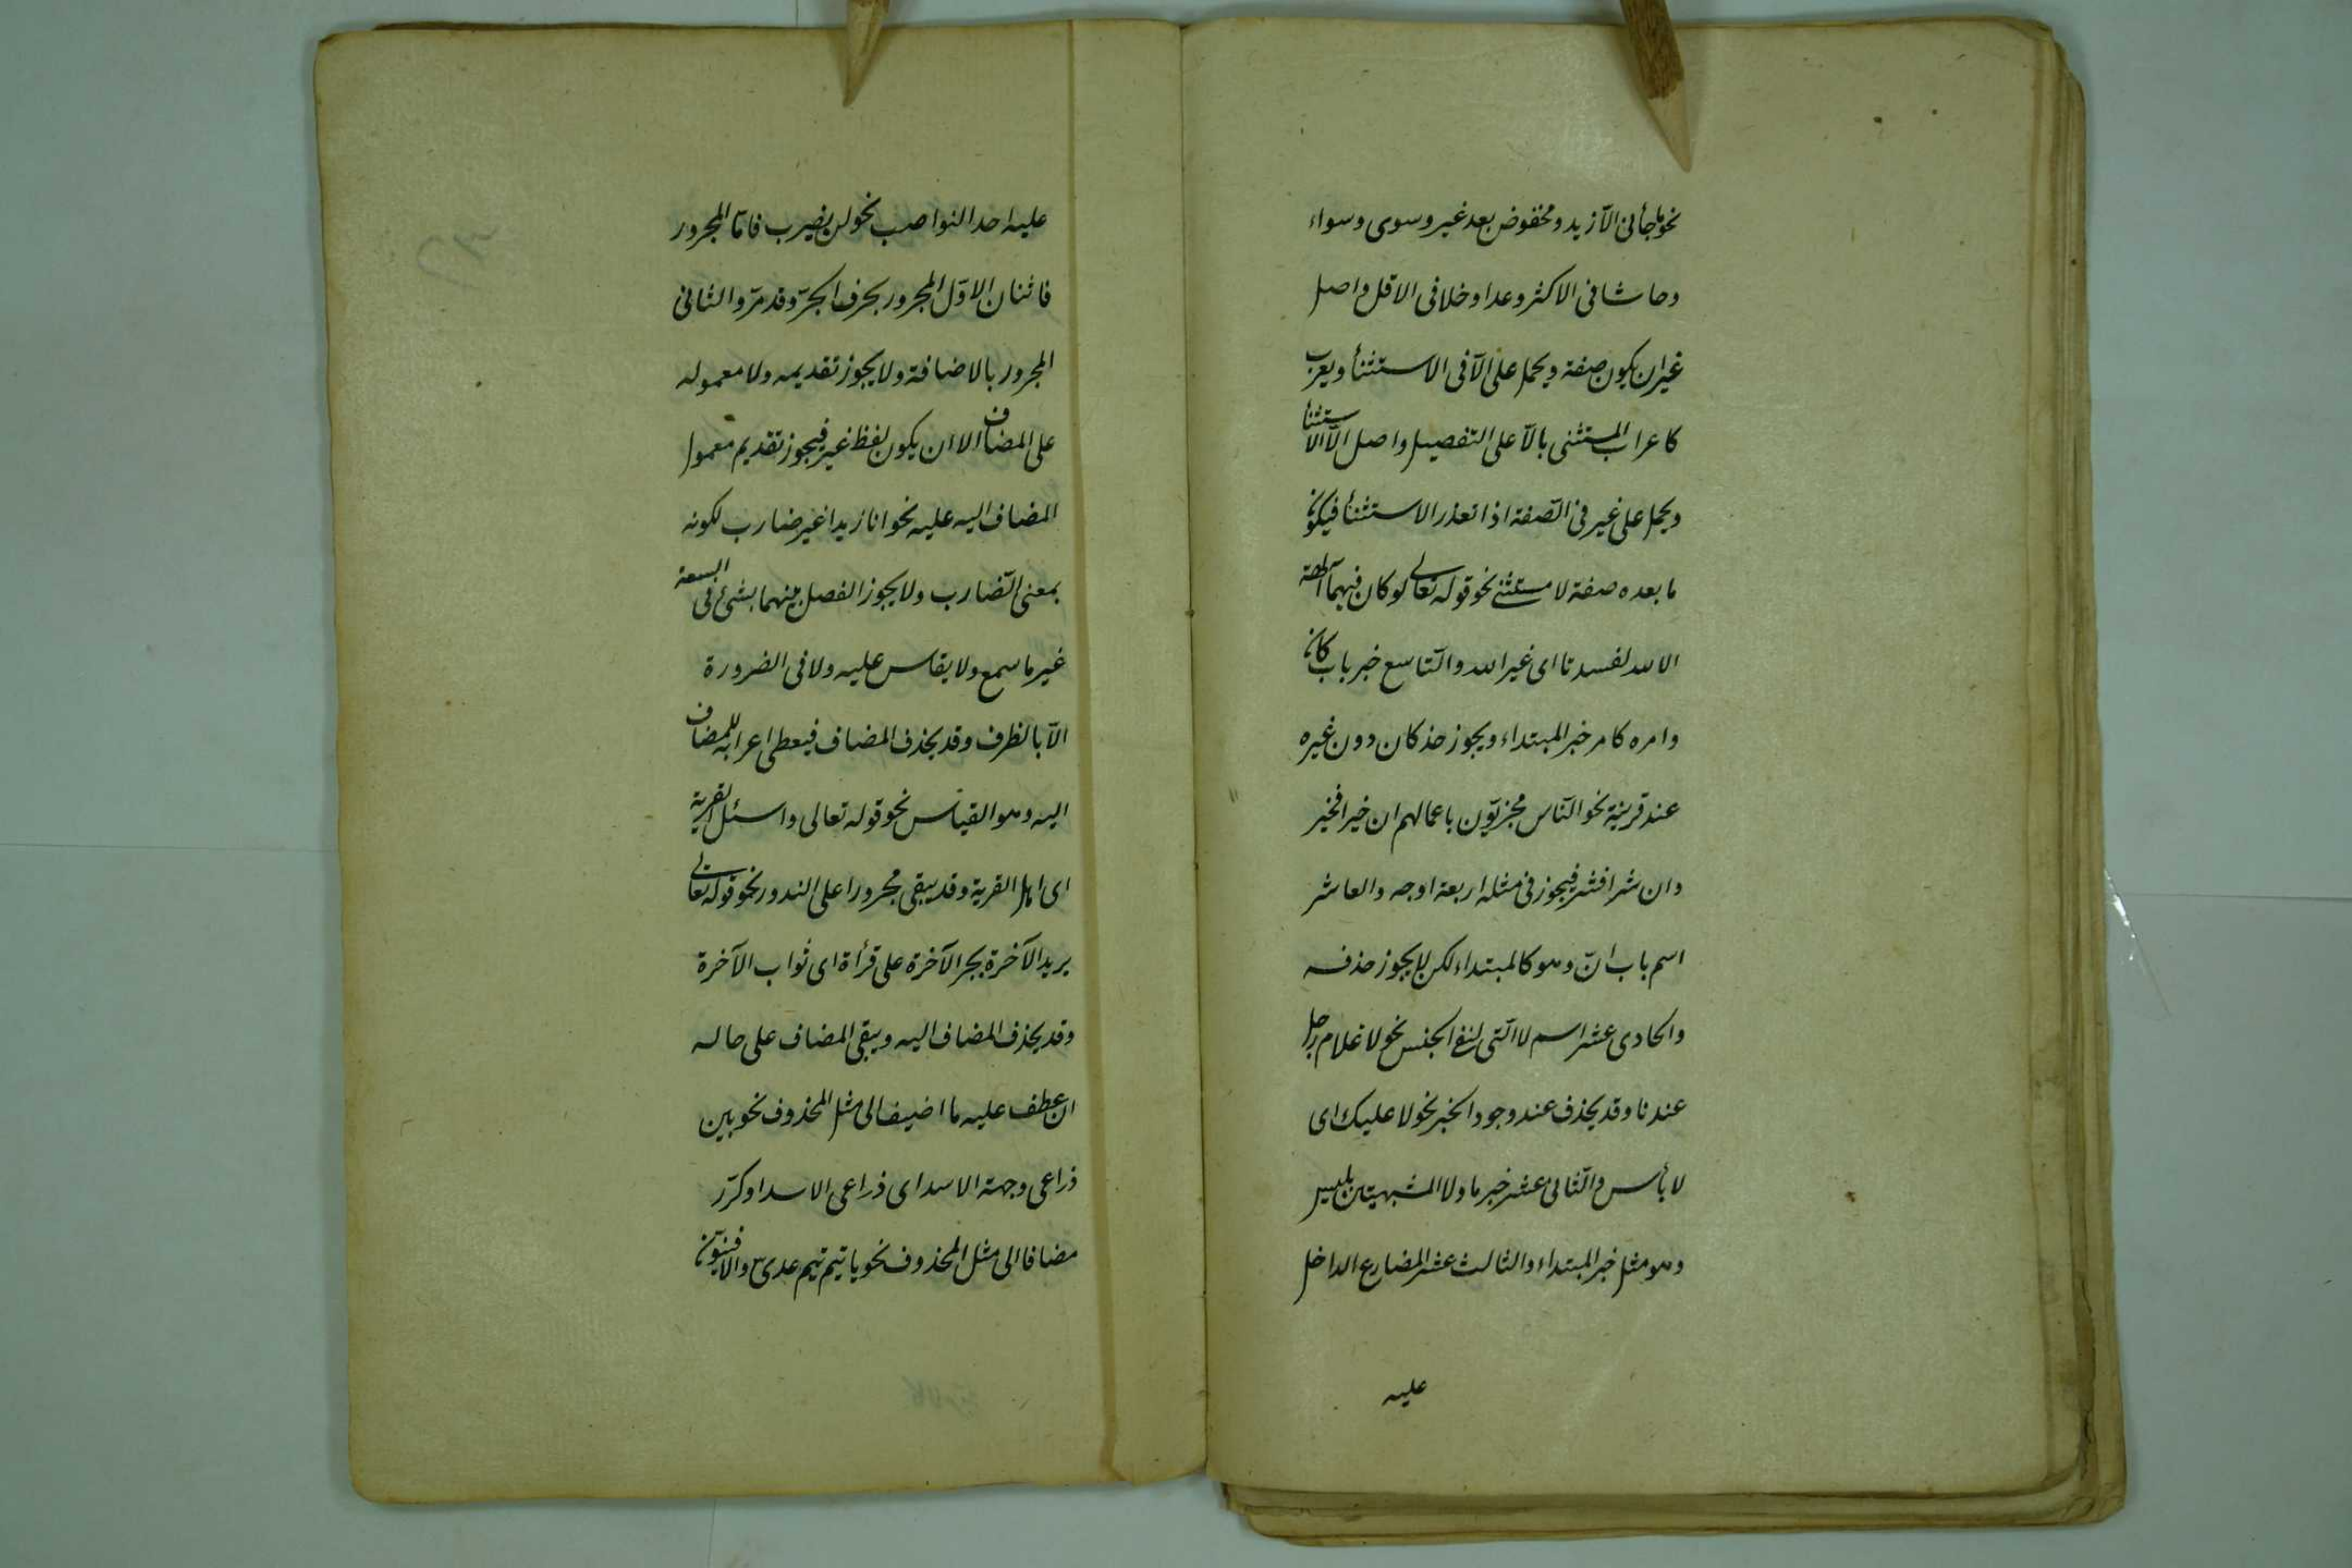 نحو ما جأنى الآ زيد ومخفوض بعد غير وسوى وسواء
وحاشا فى الاكثر وعدا وخلا فى الاقل واصل
غير ان يكون صفة ويحمل على الآ فى الاستثنأ ويعرب
كاعراب المستثنى بالآ على التفصيل واصل الآ الاستثنأ
ويحمل على غير فى الصّفة اذا تعذر الاستثنأ فيكون
ما بعده صفة لا مستثنى نحو قوله تعالى لو كان فيهما آلهة
الا الله لفسدتا اى غير الله والتّاسع خبر باب كان
وامره كامر خبر المبتداء ويجوز حذ كان دون غيره
عند قرينة نحو النّاس مجزيّون باعمالهم ان خيرا فخير
وان شرا فشر فيجوز فى مثله اربعة اوجه والعاشر
اسم باب انّ وهو كالمبتداء لكن لا يجوز حذفه
والحادى عشر اسم لا الّتى لنفى الجنس نحو لا غلام رجل
عندنا وقد يحذف عند وجود الخبر نحو لا عليك اى
لا بأس والثّانى عشر خبر ما ولا المشبهتين بليس
وهو مثل خبر المبتداء والثالث عشر المضارع الداخل
عليه
عليه احد النواصب نحو لن يضرب فامّا المجرور
فاثنان الاوّل المجرور بحرف الجرّ وقد مرّ والثانى
المجرور بالاضافة ولا يجوز تقديمه ولا معموله
على المضاف الا ان يكون لفظ غير فيجوز تقديم معمول
المضاف اليه عليه نحو انا زيدا غير ضارب لكونه
بمعنى لا ضارب ولا يجوز الفصل بينهما بشئ فى السعة
غير ما سمع ولا يقاس عليه ولا فى الضرورة
الآ بالظرف وقد يحذف المضاف فيعطى اعرابه للمضاف
اليه وهو القياس نحو قوله تعالى واسئل القرية
اى اهل القرية وقد يبقى مجرورا على الندور نحو قوله تعالى
يريد الآخرة بجر الآخرة على قرأة اى ثواب الآخرة
وقد يحذف المضاف اليه ويبقى المضاف على حاله
ان عطف عليه ما اضيف الى مثل المحذوف نحو بين
ذراعى وجبهة الاسد اى ذراعى الاسد او كرّر
مضافا الى مثل المحذوف نحو يا تيم تيم عدى والا فنيون